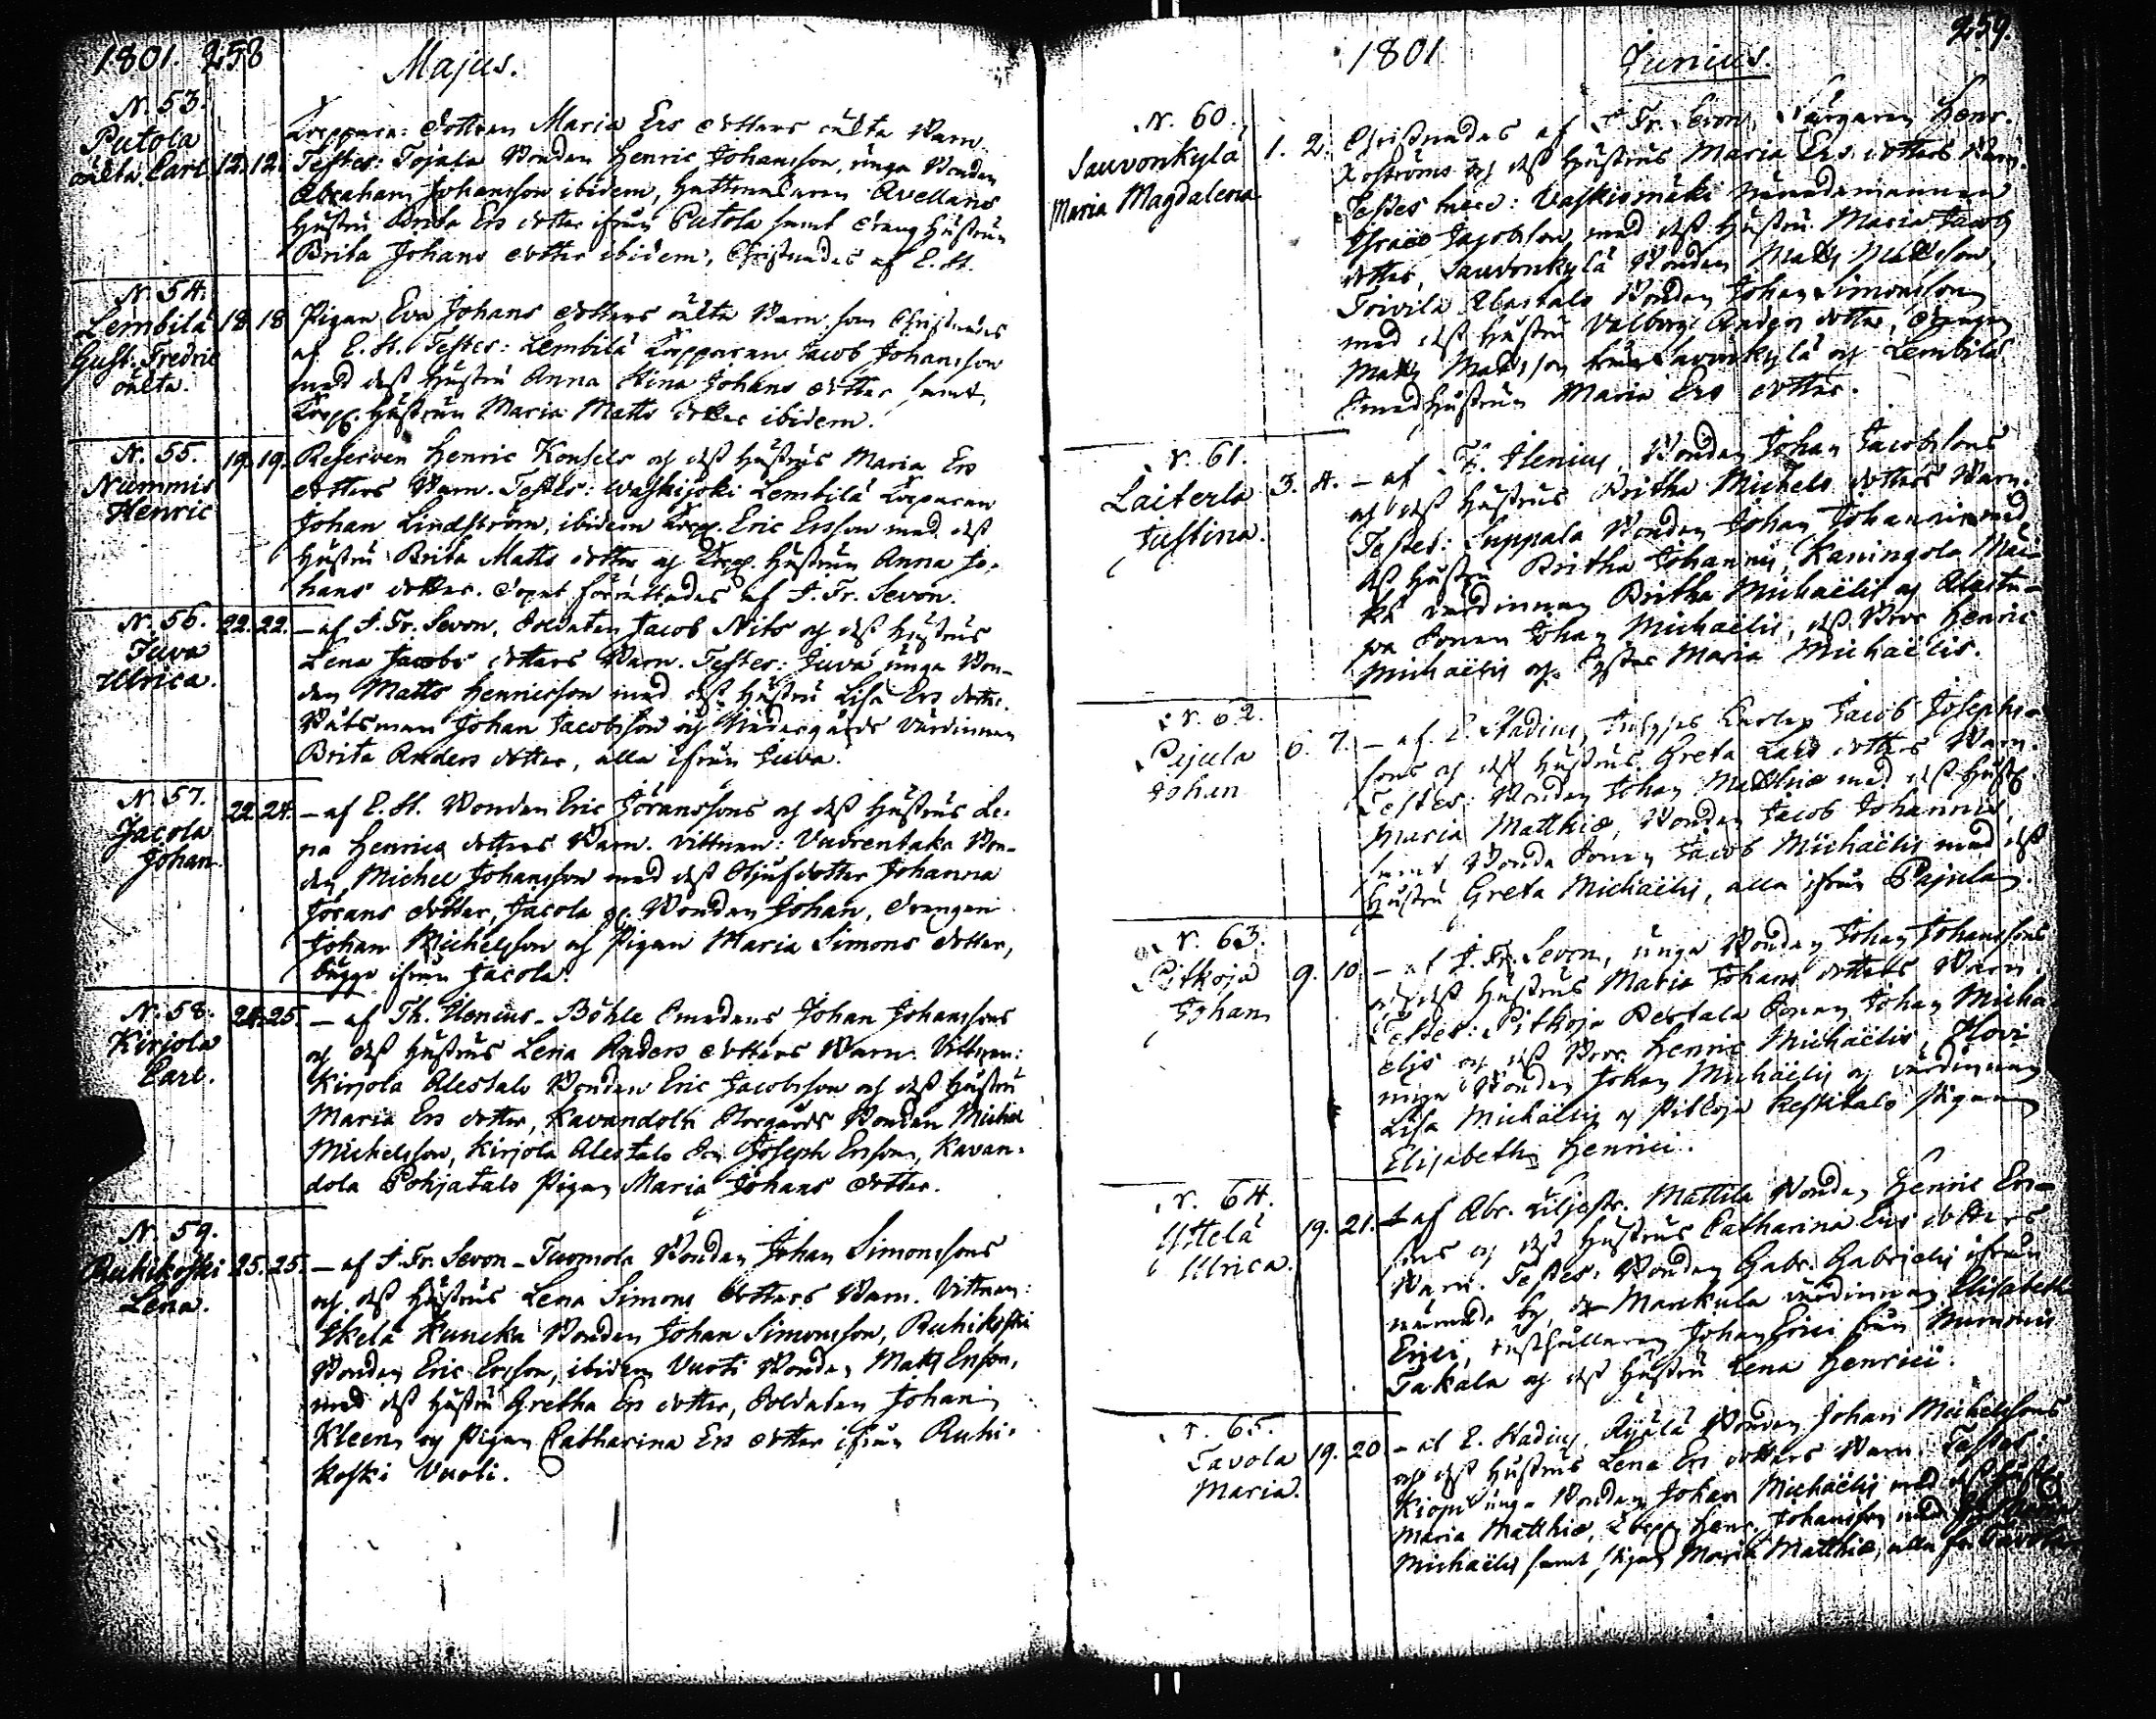 1801. 258 Majus.
N. 53. Putola oälta Carl 12. 12.
Dottren Maria Ers dotters oälta Barn.
Testes: Tojala Bonden Henric Johansson, unga Bonden
Abraham Johansson ibidem, Avellans
Hustru Brita Ers dotter ifrån Putola samt dräng Hustrun
Brita Johans dotter ibidem, Christnades af E. St.
N. 54. Lembilä Gust. Fredric oälta. 18 18
Pigan Eva Johans dotters oälta Barn som Christnades
af E. St. Testes: Lembilä Jacob Johansson
med dess Hustru Anna Stina Johans dotter samt
Hustrun Maria Matts dotter ibidem.
N. 55. Nummis Henric 19. 19.
Reserven Henric Konsels och dess Hustrus Maria Ers
dotters Barn. Testes: Waskijoki Lembilä
Johan Lindström, ibidem Eric Ersson med dess
Hustru Brita Matts dotter och Hustrun Anna Jo-
hans dotter. Dopet förrättades af J. Fr. Sevon.
N. 56. Juva Ulrica. 22. 22.
– af J. Fr. Sevon, Soldaten Jacob Nits och dess Hustrus
Lena Jacobs dotters Barn. Testes: Juva unga Bon-
den Matts Henricsson med dess Hustru Lisa Ers dotter.
Båtsman Johan Jacobsson och värdinnan
Brita Anders dotter, alla ifrån Juva.
N. 57. Jacola Johan. 22. 24.
– af E. St. Bonden Eric Jöranssons och dess Hustrus Le-
na Henrics dotters Barn. Vittnen: Vuorentaka Bon-
den Michel Johansson med dess Stjufdotter Johanna
Jörans dotter, Jacola Bonden Johan, drängen
Johan Michelsson och Pigan Maria Simons dotter,
bägge ifrån Jacola.
N. 58. Kirjola Carl. 24. 25.
– af Th. Elenius – Böhle Smedens Johan Johanssons
och dess Hustrus Lena Anders dotters Barn. Vittnen:
Kirjola Alestalo Bonden Eric Jacobsson och dess Hustru
Maria Ers dotter, Kavandola Bonden Michel
Michelsson, Kirjola Alestalo Joseph Ersson, Kavan-
dola Pohjatalo Pigan Maria Johans dotter.
N. 59. Ruhikoski Lena. 25. 25.
– af J. Fr. Sevon – Tuomola Bonden Johan Simonssons
och dess Hustrus Lena Simons dotters Barn. Vittnen:
Ikelä Bonden Johan Simonsson, Ruhikoski
Bonden Eric Ersson, ibidem Vuoti Bonden Matts Ersson,
med dess Hustru Gretha Ers dotter, Soldaten Johan
Kleen och Pigan Catharina Ers dotter ifrån Ruhi-
koski Vuoti.
1801 Junius. 259.
N. 60. Sauvonkylä Maria Magdalena 1. 2.
Christnades af J. Fr. Sevon, Färgaren Henr.
och dess Hustrus Maria Ers dotters Barn.
Testes Vaskismäki nämndemannen
Jacobsson med dess Hustru Maria Jacobs
dotter, Sauvonkylä Bonden Matts Mattsson,
Toivila Alastalo Bonden Johan Simonsson
med dess Hustru Valborg Anders dotter, drängen
Matts Mattsson från Sauvonkylä och Lembilä
Smed Hustrun Maria Ers dotter.
N. 61. Laiterla Justina. 3. 4.
– af Th. Elenius, Bonden Johan Jacobssons
och dess Hustrus Britha Michels dotters Barn.
Testes: Suppala Bonden Johan Johannis med
dess Hustru Britha Johannis, Kaningola
värdinnan Britha Michaëlis och
Sonen Johan Michaëlis, dess Bror Henric
Michaëlis och Syster Maria Michaëlis.
N. 62. Pajula Johan 6. 7.
– af E. Stadius, Jacob Josephs-
sons och dess Hustrus Greta Lars dotters Barn.
Testes: Bonden Johan Matthiæ med dess Hustru
Maria Matthiæ, Bonden Jacob Johannis,
samt Bonde Sonen Jacob Michaëlis med dess
Hustru Greta Michaëlis, alla ifrån Pajula.
N. 63. Pitkoja Johan 9. 10
– af J. Fr. Sevon, unga Bonden Johan Johanssons
och dess Hustrus Maria Johans dotters Barn
Testes: Pitkoja Pertala Sonen Johan Micha-
elis och dess Bror Henric Michaëlis,
Bonden Johan Michaëlis och värdinnan
Lisa Michaëlis och Pitkoja Keskitalo Pigan
Elisabeth Henrici.
N. 64. Uttelä Ulrica. 19. 21.
– af Abr. Liljestr. Mattila Bonden Henric Ers-
sons och dess Hustrus Catharina Ers dotters
Barn. Testes: Bonden Gabr. Gabrielis ifrån
nämnde by, Mankula värdinnan Elisabeth
Erici, rusthållaren Johan Erici från Nummis
Takala och dess Hustru Lena Henrici.
N. 65. Tavola Maria. 19. 20
– af E. Stadius, Bonden Johan Michelssons
och dess Hustrus Lena Ers dotters Barn. Testes:
unga Bonden Johan Michaëlis med dess Hustru
Maria Matthiæ, Henr. Johansson med
Michaëlis samt Pigan Maria Matthiæ, alla från Tavola